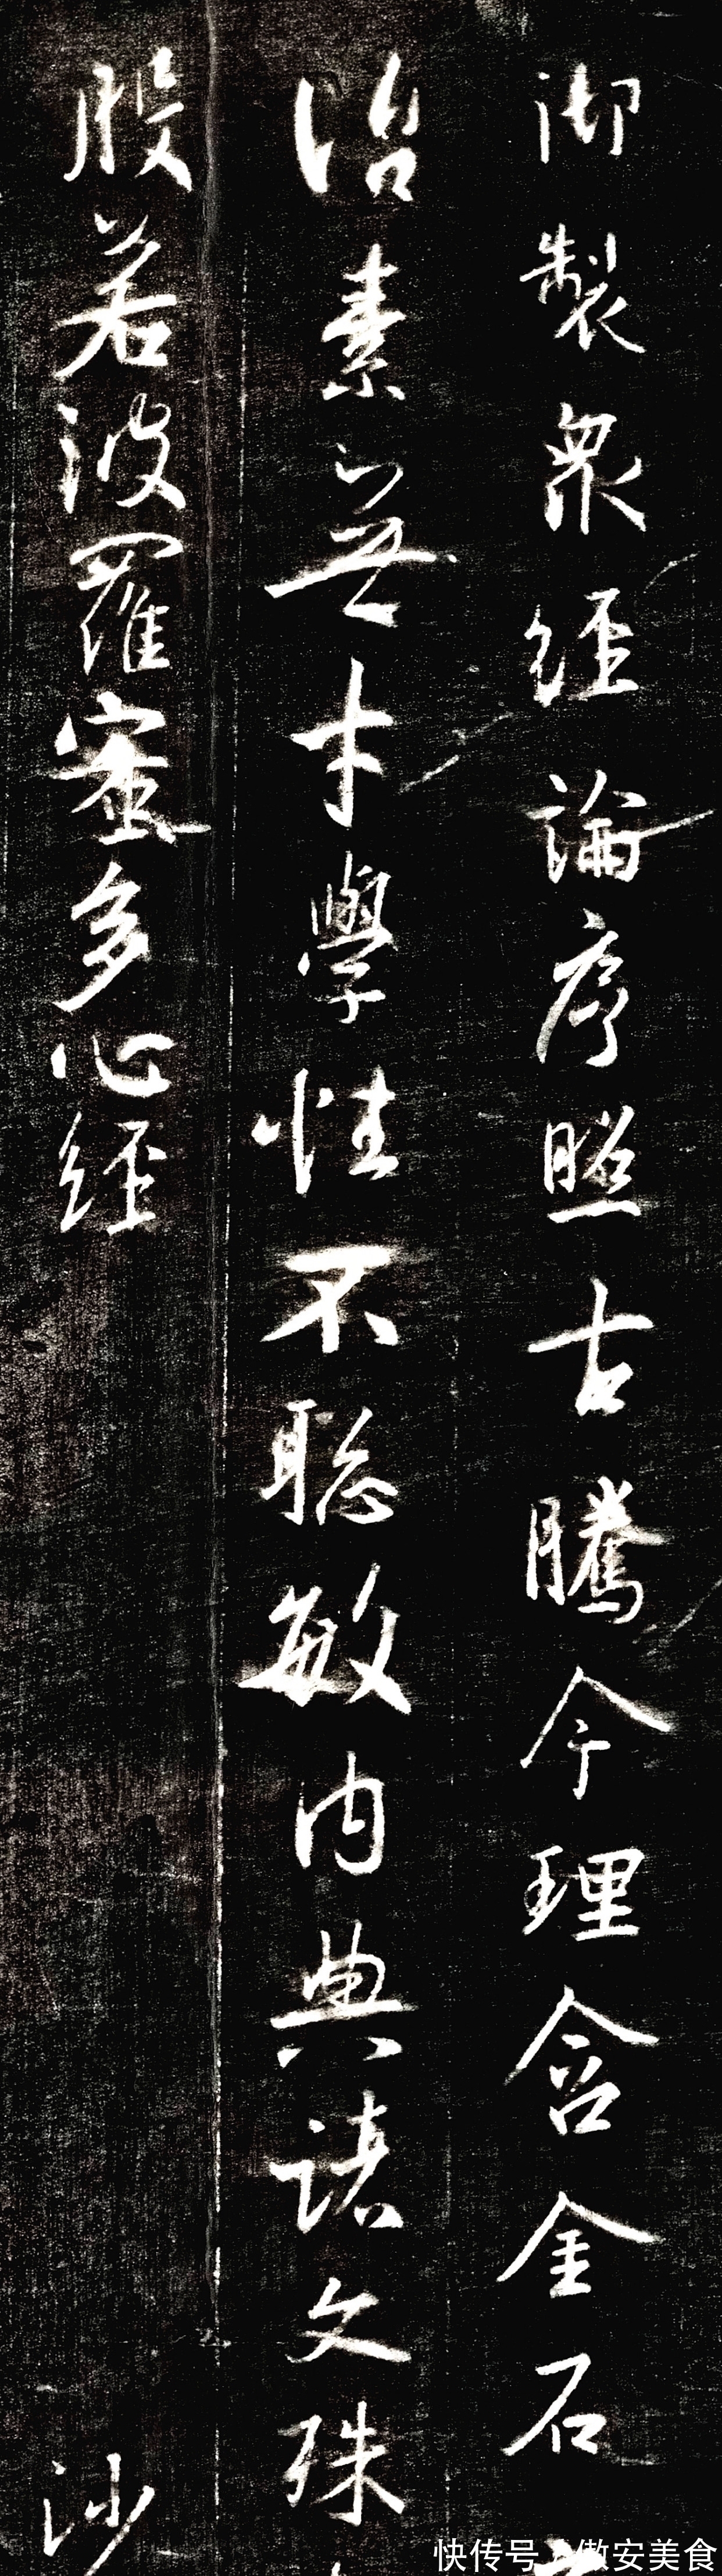 御製眾經論序照古騰今理含金石
治素無才學性不聰敏內典諸文殊
般若波羅蜜多心經 沙
快传号/傲安美食